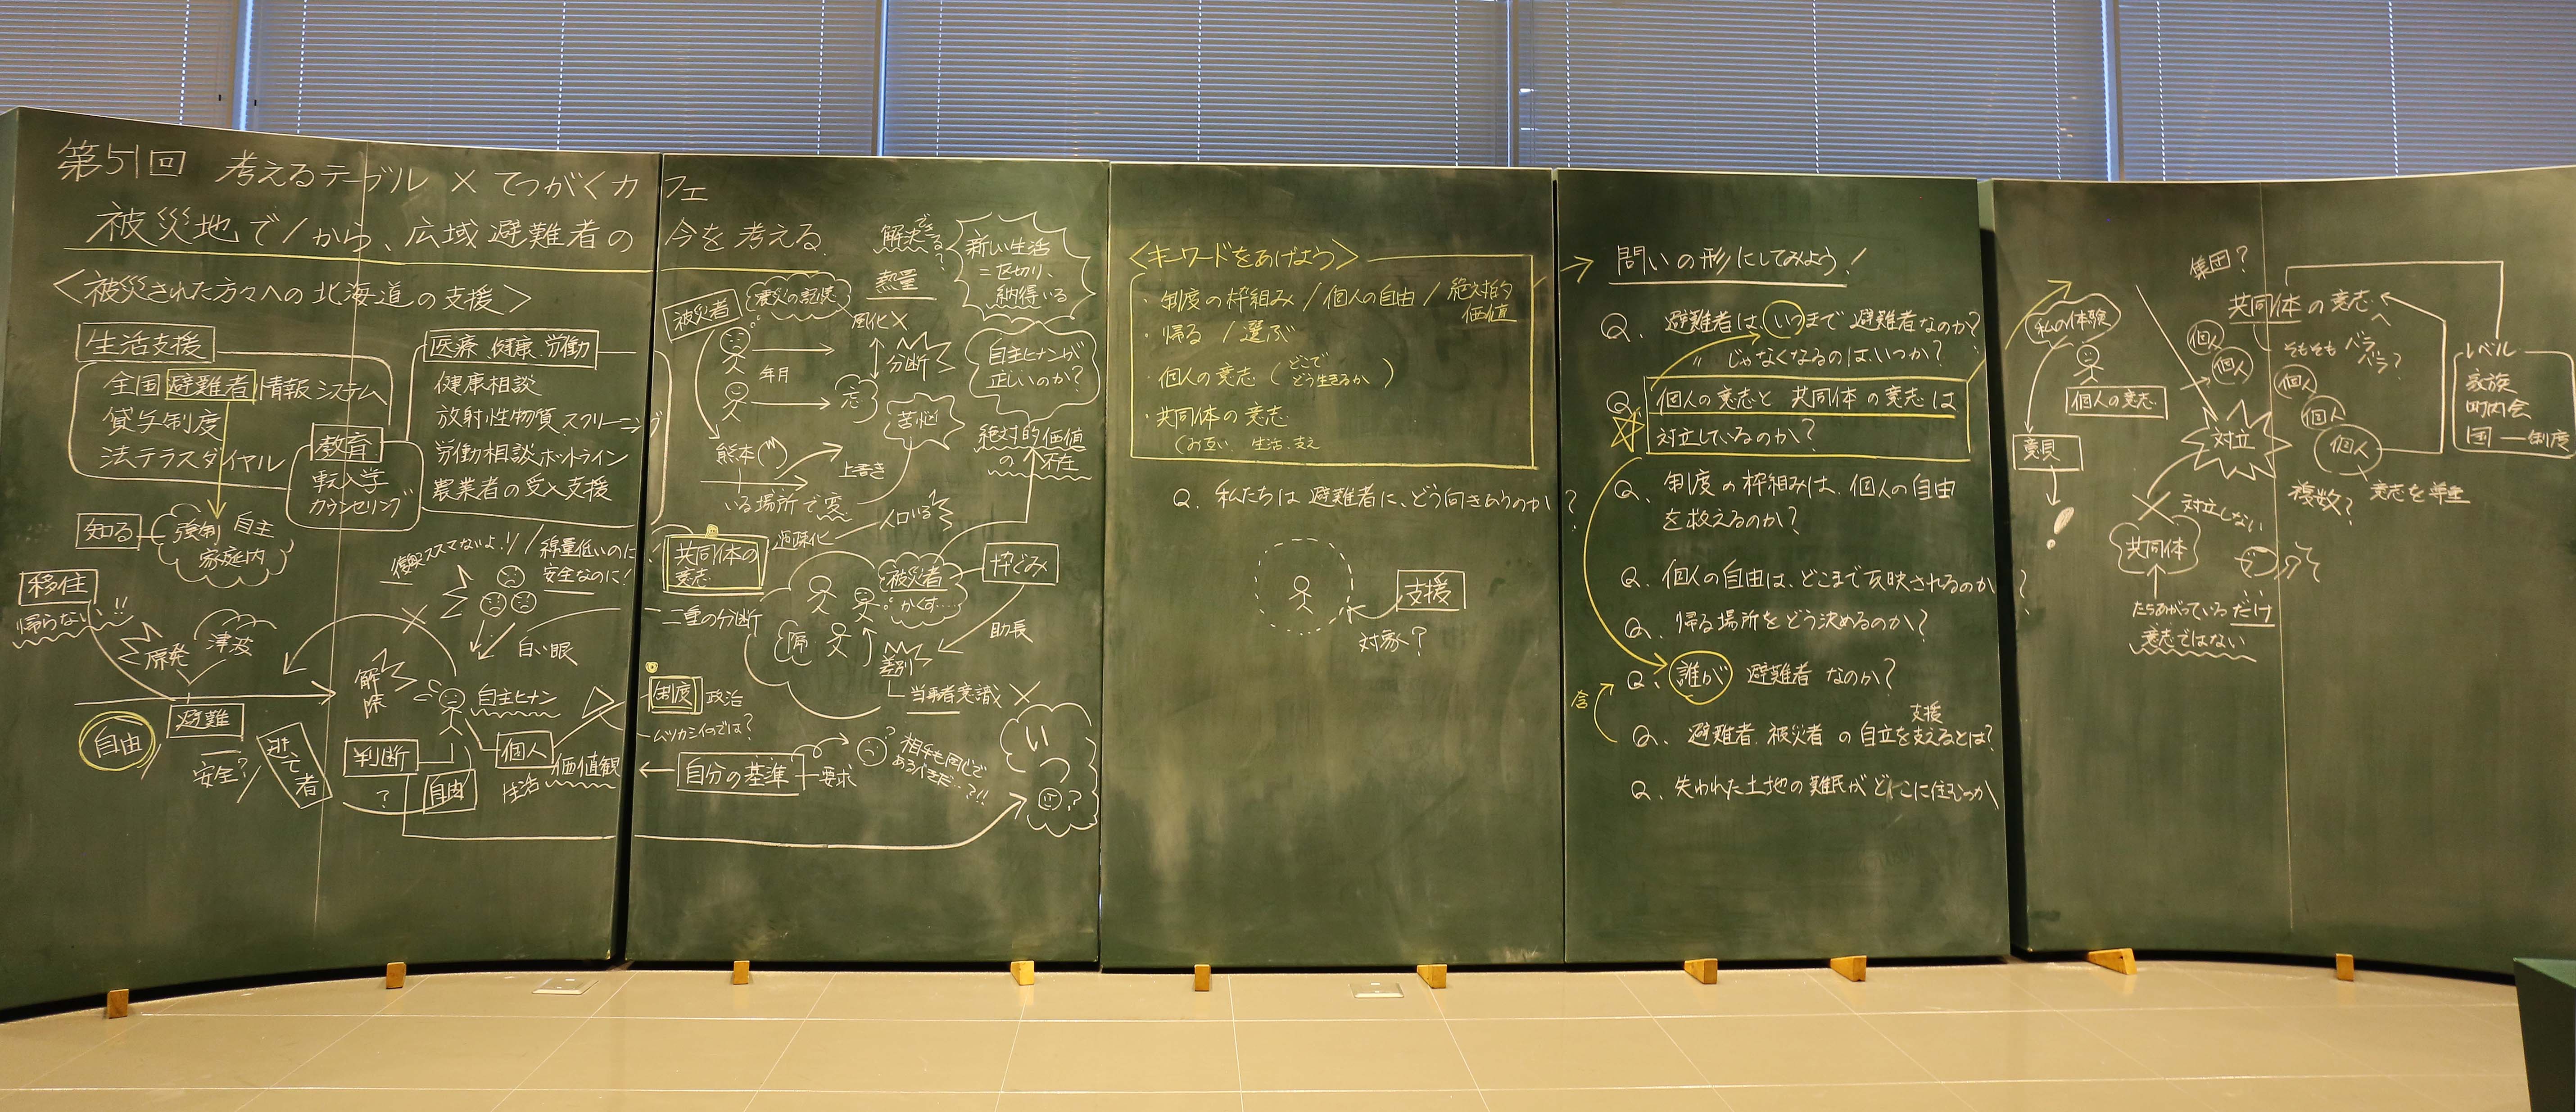 第51回 考えるテーブル × てつがくカフェ
被災地で/から、広域避難者の今を考える
<被災された方々への北海道の支援>
生活支援
全国避難者情報システム
貸与制度
法テラスダイヤル
教育
転入学
カウンセリング
医療 健康 労働
健康相談
放射性物質スクリーニング
労働相談ホットライン
農業者の受入支援
知る
強制 自主
家庭内
移住
帰らない!!
原発
津波
避難
自由
安全?
逃て者
解除
判断
?
自由
自主ヒナン
個人
生活
価値観
復興ススマないよ!!
線量低いのに
安全なのに!
白い眼
被災者
震災の記憶
年月
熱量
風化×
分断
忘
苦悩
解決できる?
新しい生活
=区切り、
納得いる
自主ヒナンが
正しいのか?
絶対的価値
の不在
熊本
上書き
いる場所で変
人口いる
共同体の
意志
過疎化
二重の分断
被災者
かくす……
枠ぐみ
助長
隔
差別
当事者意識 ×
制度 政治
ムツカシイのでは?
自分の基準
要求
相手も同じで
あるべきだ…?!!
<キーワードをあげよう>
・制度の枠組み/個人の自由/絶対的価値
・帰る/選ぶ
・個人の意志(どこで どう生きるか)
・共同体の意志
(お互い 生活 支え
Q. 私たちは避難者に、どう向きあうのか?
支援
対象?
→ 問いの形にしてみよう!
Q. 避難者は、いつまで避難者なのか?
〃 じゃなくなるのは、いつか?
Q. 個人の意志と共同体の意志は
対立しているのか?
Q. 制度の枠組みは、個人の自由
を救えるのか?
Q. 個人の自由は、どこまで反映されるのか?
Q. 帰る場所をどう決めるのか?
Q. 誰が避難者なのか?
含
支援
Q. 避難者、被災者の自立を支えるとは?
Q. 失われた土地の難民がどこに住むのか
私の体験
個人の意志
意見
!
集団?
共同体の意志
そもそもバラバラ?
個人
個人
個人
個人
個人
対立
対立しない
共同体
たちあがっているだけ
意志ではない
複数?
意志を尊重
レベル
家族
町内会
国 ― 制度